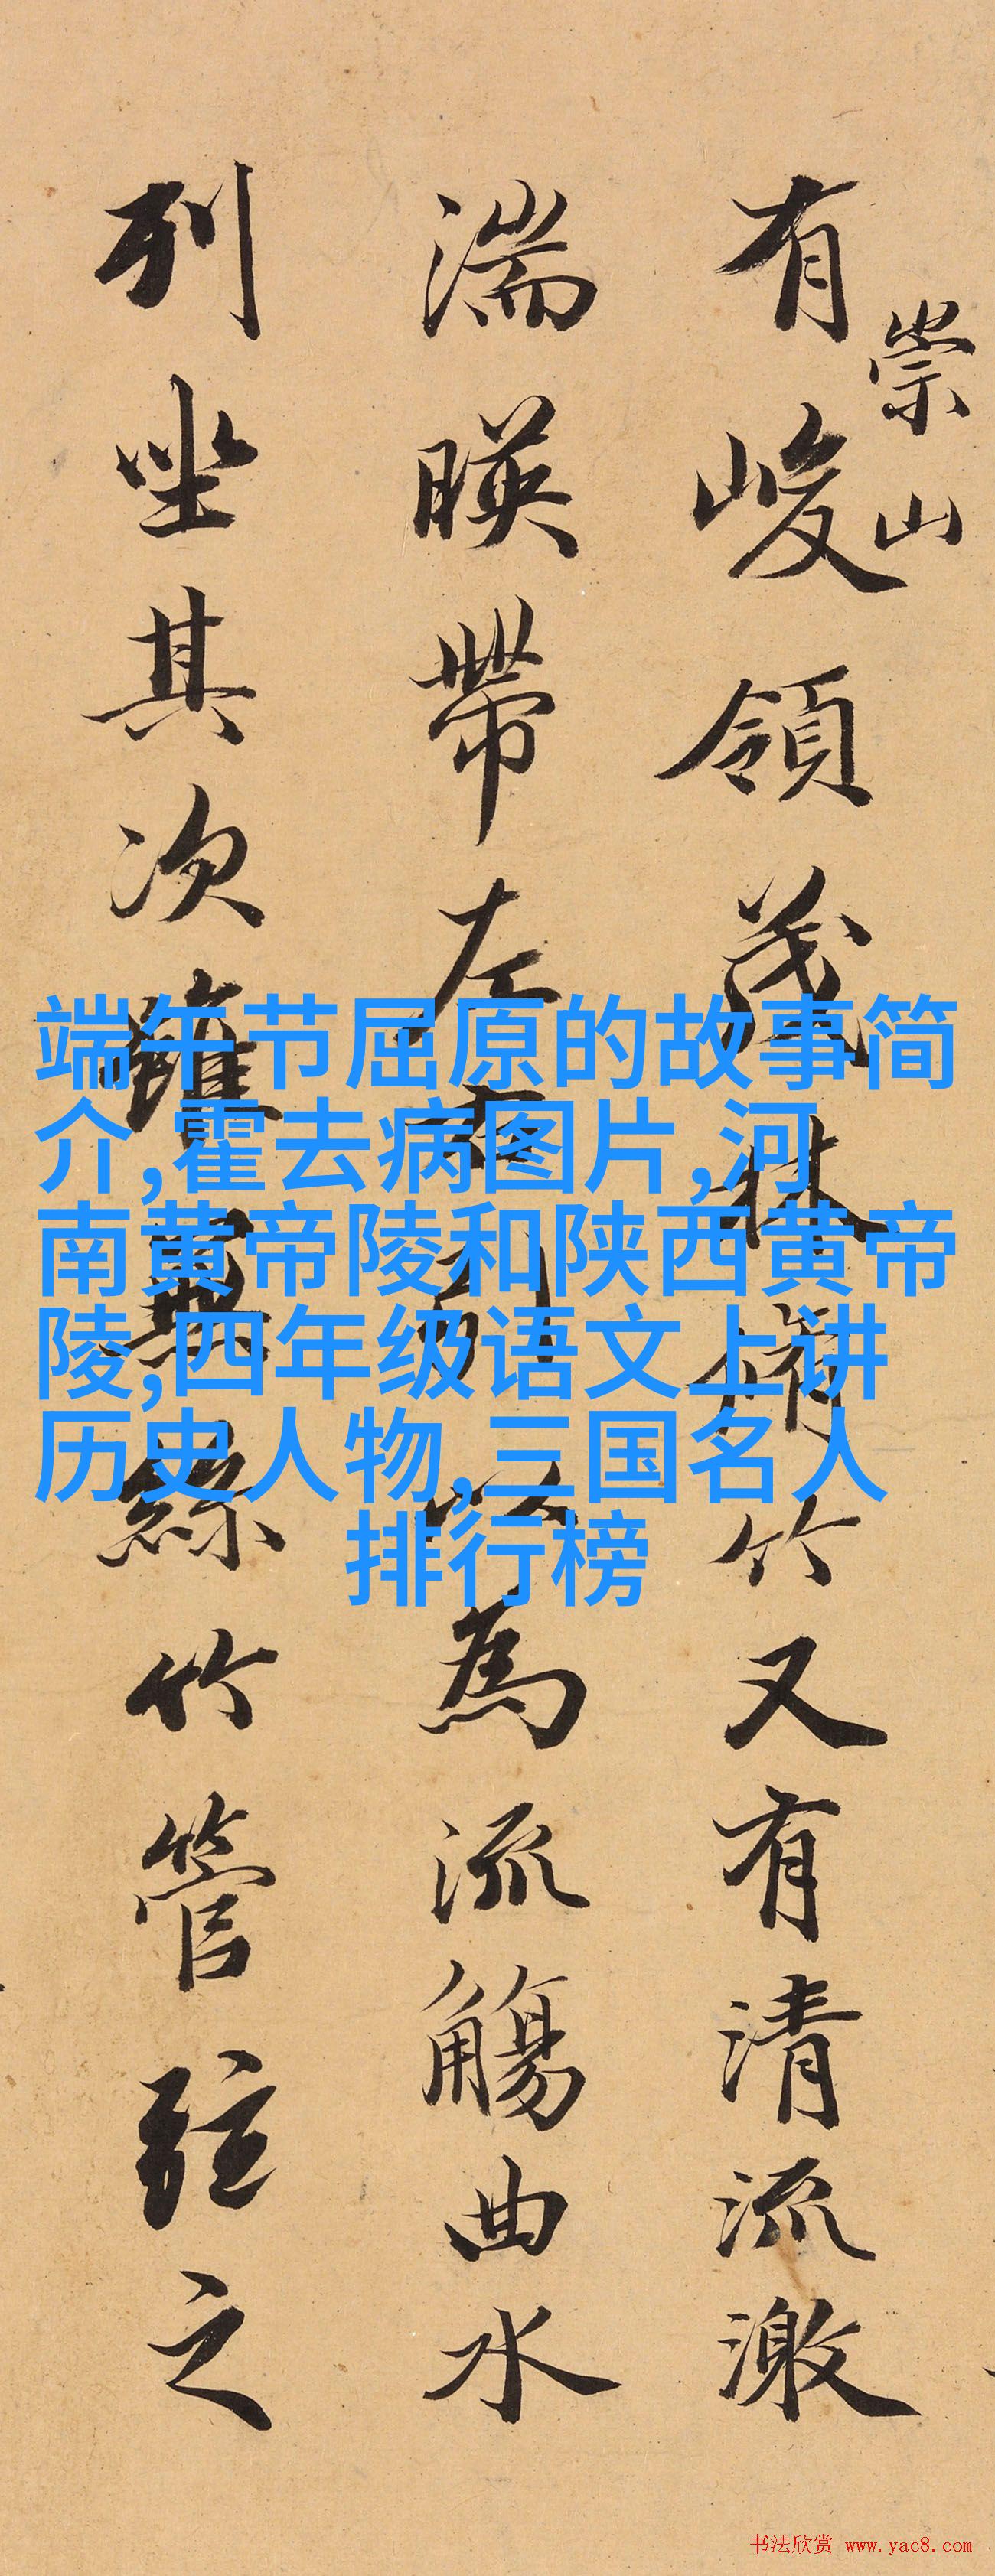 有峻領茂林脩竹又有清流激
崇山
湍暎帶左右引以為流觴曲水
列坐其次雖無絲竹管弦之
端午节屈原的故事简
介,霍去病图片,河
南黄帝陵和陕西黄帝
陵,四年级语文上讲
历史人物,三国名人
排行榜
书法欣赏 www.yac8.com